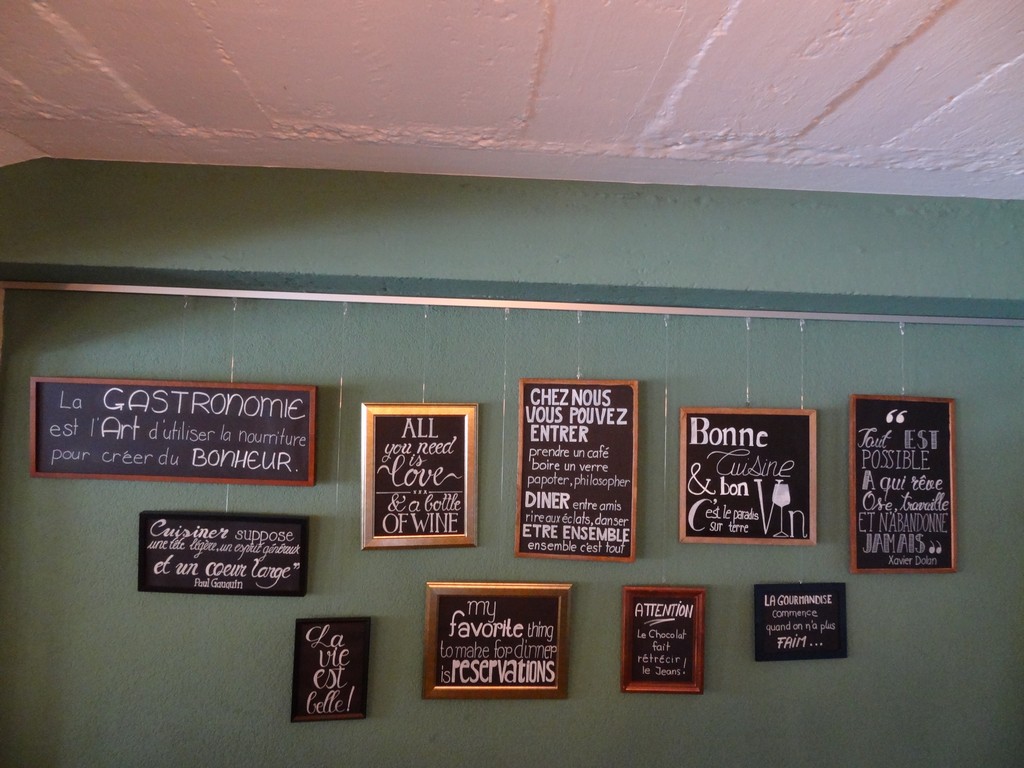 La GASTRONOMIE
est l'Art d'utiliser la nourriture
pour créer du BONHEUR.
ALL
you need
is
love
& a bottle
OF WINE
CHEZ NOUS
VOUS POUVEZ
ENTRER
prendre un café
boire un verre
papoter, philosopher
DINER entre amis
rire aux éclats, danser
ETRE ENSEMBLE
ensemble c'est tout
Bonne
Cuisine
& bon Vin
C'est le paradis
sur terre
“
Tout EST
POSSIBLE
A qui rêve
Ose, travaille
ET N'ABANDONNE
JAMAIS „
Xavier Dolan
Cuisiner suppose
une tête légère, un esprit généreux
et un coeur large”
Paul Gauguin
La
vie
est
belle!
my
favorite thing
to make for dinner
is RESERVATIONS
ATTENTION
Le Chocolat
fait
rétrécir
le Jeans!
LA GOURMANDISE
commence
quand on n'a plus
FAIM...